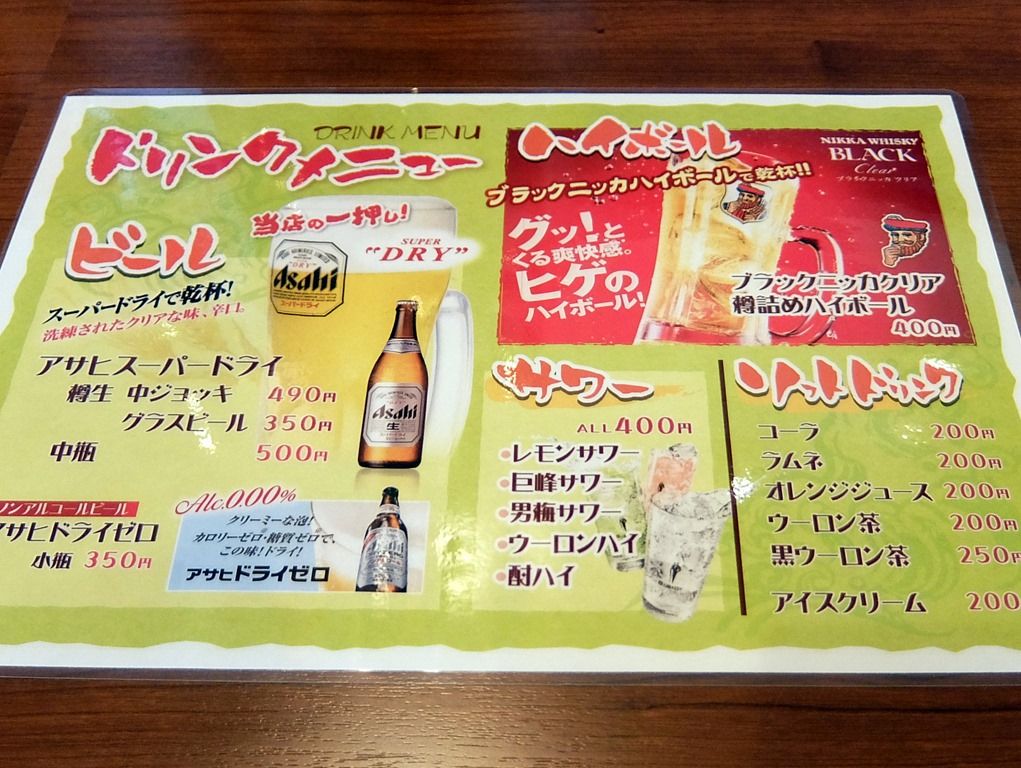 DRINK MENU
ドリンクメニュー
ビール
当店の一押し!
SUPER
"DRY"
"DRY"
Asahi
スーパードライ
スーパードライで乾杯!
洗練されたクリアな味、辛口。
アサヒスーパードライ
樽生 中ジョッキ 490円
グラスビール 350円
中瓶 500円
Asahi
生
ノンアルコールビール
アサヒドライゼロ
小瓶 350円
Alc.0.00%
クリーミーな泡!
カロリーゼロ・糖質ゼロで、
この味!ドライ!
アサヒドライゼロ
Asahi
ハイボール
ブラックニッカハイボールで乾杯!!
NIKKA WHISKY
BLACK
Clear
ブラックニッカ クリア
グッ!と
くる爽快感。
ヒゲの
ハイボール!
ブラックニッカクリア
樽詰めハイボール
400円
サワー
ALL400円
•レモンサワー
•巨峰サワー
•男梅サワー
•ウーロンハイ
•酎ハイ
ソフトドリンク
コーラ 200円
ラムネ 200円
オレンジジュース 200円
ウーロン茶 200円
黒ウーロン茶 250円
アイスクリーム 200